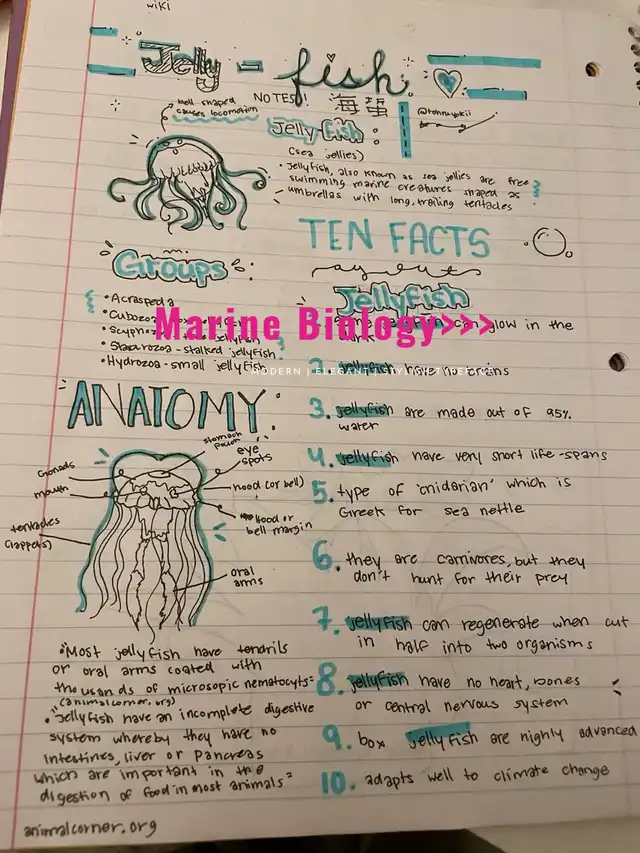 wiki
Jelly - fish
NOTES!
海蜇
bell shaped
causes locomotion
Jelly-Fish:
@tohruyokii
(sea jellies)
• Jellyfish, also known as sea jellies are free
swimming marine creatures shaped as
umbrellas with long, trailing tentacles
TEN FACTS
about
Jellyfish
Groups:
• Acraspeda
• Cubozoa
• Scyphozoa
• Staurozoa - stalked jellyfish
• Hydrozoa - small jellyfish
Marine Biology>>>
can glow in the
dark
MODERN | ELEGANT | STYLISH TYPEFACE
2. Jellyfish have no brains
3. Jellyfish are made out of 95%
water
4. Jellyfish have very short life-spans
5. type of 'cnidarian' which is
Greek for sea nettle
6. they are carnivores, but they
don't hunt for their prey
7. jellyfish can regenerate when cut
in half into two organisms
8. jellyfish have no heart, bones
or central nervous system
9. box jellyfish are highly advanced
10. adapts well to climate change
ANATOMY:
stomach
pouch
Gonads
eye
spots
mouth
hood (or bell)
hood or
bell margin
tentacles
(lappets)
oral
arms
"Most jellyfish have tendrils
or oral arms coated with
thousands of microsopic nematocyts"
(animalcorner.org)
• "Jellyfish have an incomplete digestive
system whereby they have no
intestines, liver or pancreas
which are important in the
digestion of food in most animals"
animalcorner.org